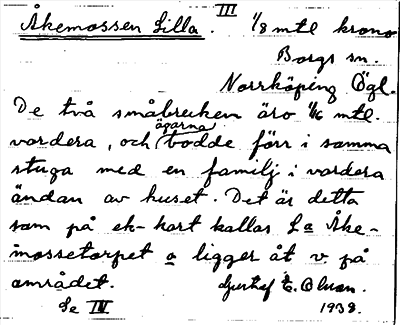 III
Åkemossen Lilla. 1/8 mtl krono
Borgs sn.
Norrköping Ögl.
De två småbruken äro 1/16 mtl.
vardera, och ägarna bodde förr i samma
stuga med en familj i vardera
ändan av huset. Det är detta
som på ek-kart kallas La Åke-
mossetorpet o ligger åt v. på
området. Gustaf E. Olson.
Se IV 1938.